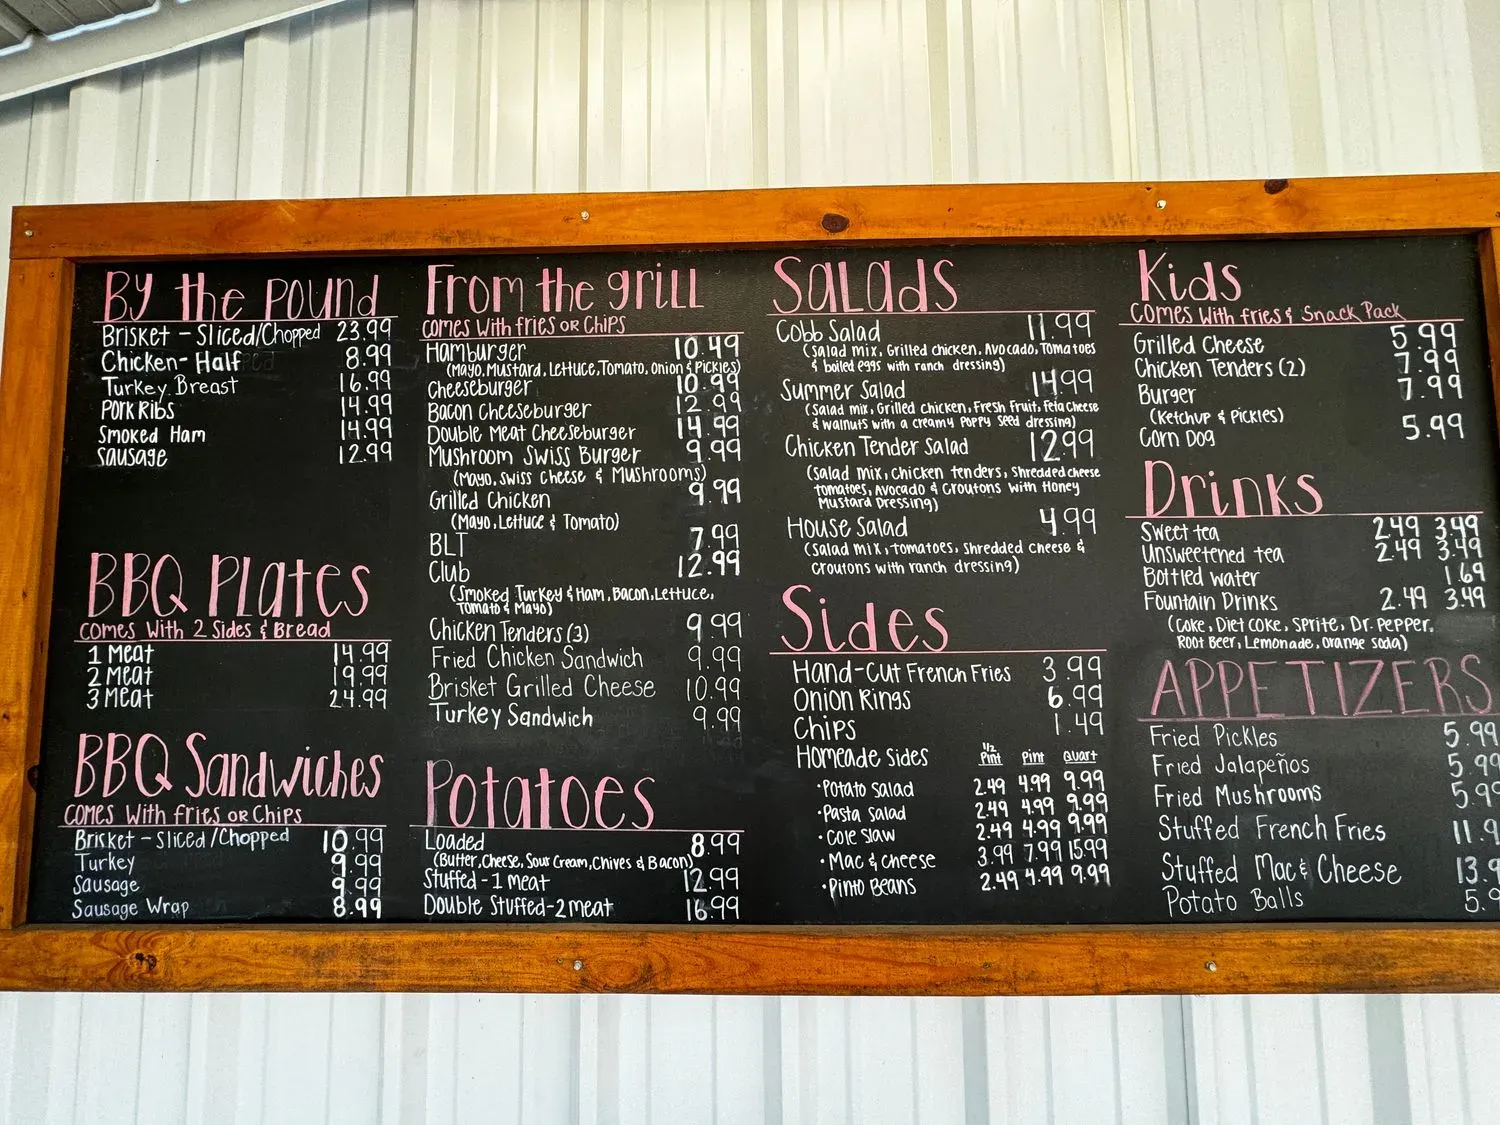 By the Pound
Brisket - Sliced/Chopped 23.99
Chicken - Half 8.99
Turkey Breast 16.99
Pork Ribs 14.99
Smoked Ham 14.99
Sausage 12.99
BBQ Plates
Comes With 2 Sides & Bread
1 Meat 14.99
2 Meat 19.99
3 Meat 24.99
BBQ Sandwiches
Comes With fries or Chips
Brisket - Sliced/Chopped 10.99
Turkey 9.99
Sausage 9.99
Sausage Wrap 8.99
From the grill
Comes With fries or Chips
Hamburger 10.49
(Mayo, Mustard, Lettuce, Tomato, Onion & Pickles)
Cheeseburger 10.99
Bacon Cheeseburger 12.99
Double Meat Cheeseburger 14.99
Mushroom Swiss Burger 9.99
(Mayo, Swiss Cheese & Mushrooms)
Grilled Chicken 9.99
(Mayo, Lettuce & Tomato)
BLT 7.99
Club 12.99
(Smoked Turkey & Ham, Bacon, Lettuce,
Tomato & Mayo)
Chicken Tenders (3) 9.99
Fried Chicken Sandwich 9.99
Brisket Grilled Cheese 10.99
Turkey Sandwich 9.99
Potatoes
Loaded 8.99
(Butter, Cheese, Sour Cream, Chives & Bacon)
Stuffed - 1 meat 12.99
Double Stuffed - 2 meat 16.99
Salads
Cobb Salad 11.99
(Salad mix, Grilled chicken, Avocado, Tomatoes
& boiled eggs with ranch dressing)
Summer Salad 14.99
(Salad mix, Grilled chicken, Fresh Fruit, feta Cheese
& walnuts with a creamy Poppy seed dressing)
Chicken Tender Salad 12.99
(Salad mix, Chicken tenders, Shredded cheese
tomatoes, Avocado & Croutons with Honey
Mustard Dressing)
House Salad 4.99
(Salad mix, tomatoes, Shredded cheese &
Croutons with ranch dressing)
Sides
Hand-Cut French Fries 3.99
Onion Rings 6.99
Chips 1.49
Homeade Sides 1/2 Pint Pint Quart
• Potato Salad 2.49 4.99 9.99
• Pasta Salad 2.49 4.99 9.99
• Cole Slaw 2.49 4.99 9.99
• Mac & Cheese 3.99 7.99 15.99
• Pinto Beans 2.49 4.99 9.99
Kids
Comes With fries & Snack Pack
Grilled Cheese 5.99
Chicken Tenders (2) 7.99
Burger 7.99
(Ketchup & Pickles)
Corn Dog 5.99
Drinks
Sweet tea 2.49 3.49
Unsweetened tea 2.49 3.49
Bottled water 1.69
Fountain Drinks 2.49 3.49
(Coke, Diet Coke, Sprite, Dr. Pepper,
Root Beer, Lemonade, Orange Soda)
APPETIZERS
Fried Pickles 5.99
Fried Jalapeños 5.99
Fried Mushrooms 5.99
Stuffed French Fries 11.9
Stuffed Mac & Cheese 13.9
Potato Balls 5.9